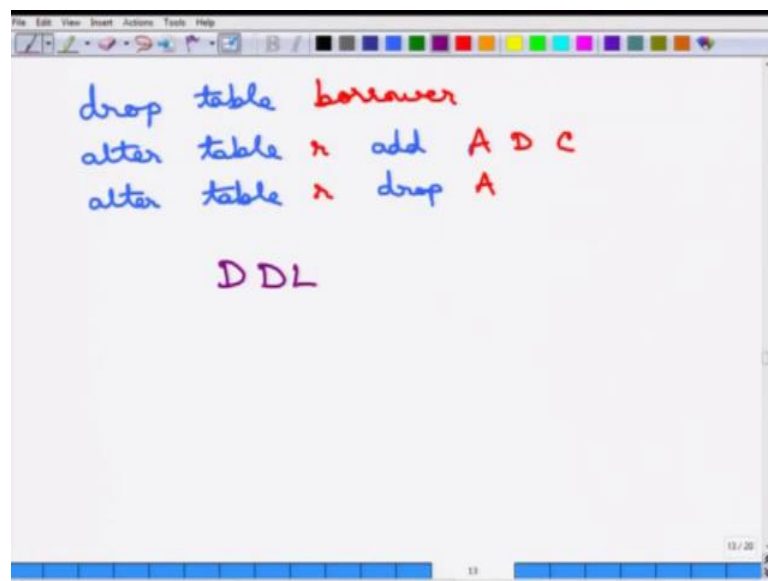 File Edit View Insert Actions Tools Help
drop table borrower
alter table r add A D C
alter table r drop A
DDL
13 / 20
13